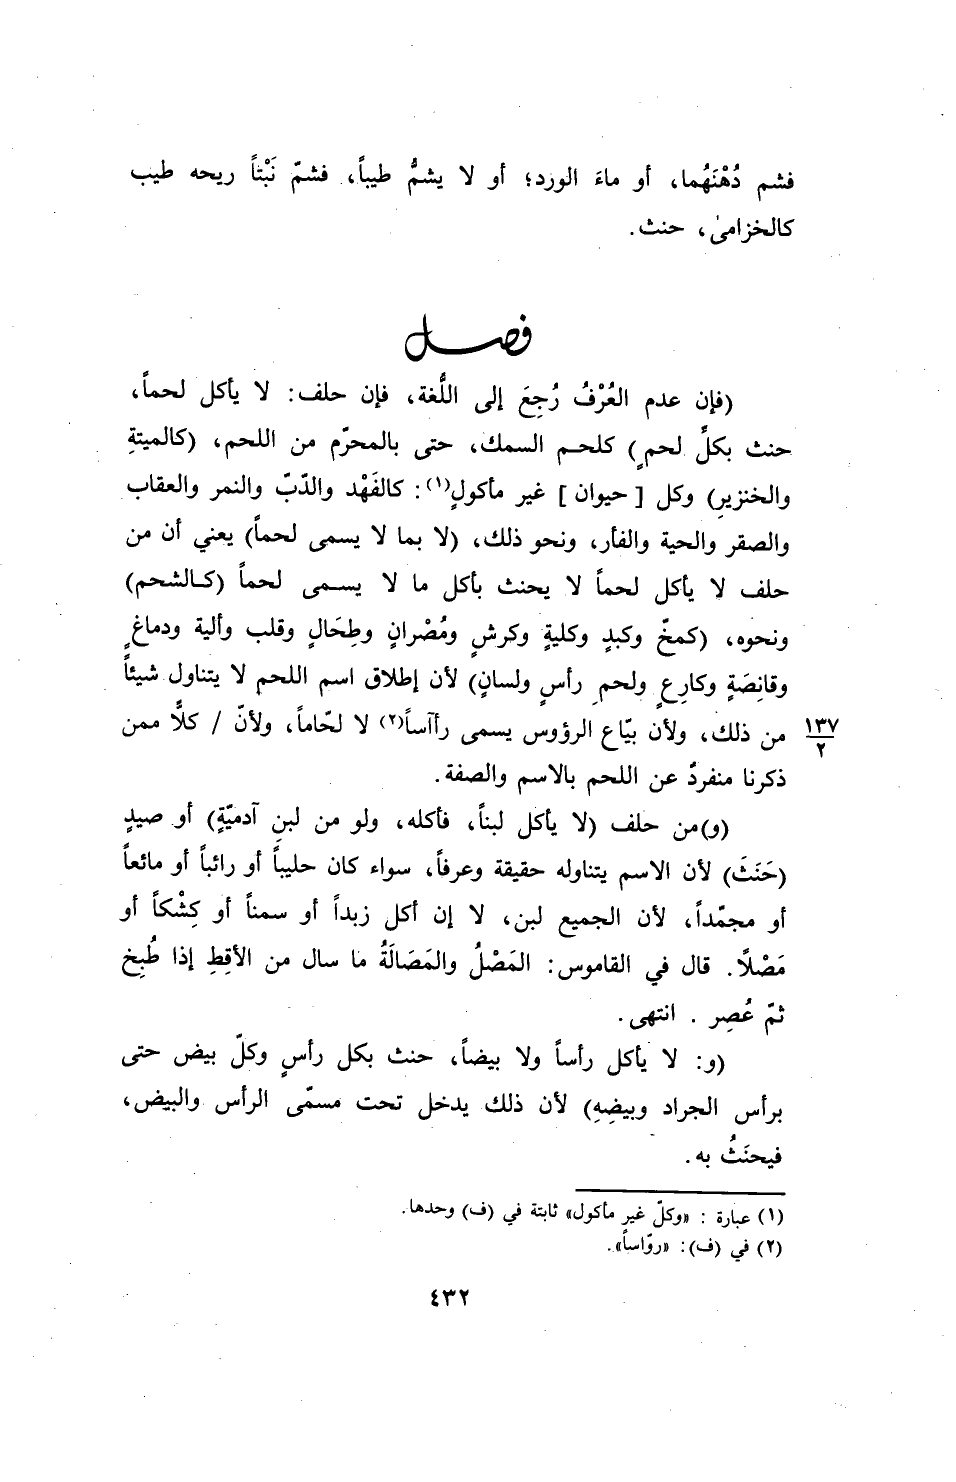 فشم دُهْنَهُما، أو ماءَ الورد؛ أو لا يشمُّ طيباً، فشمّ نَبْتاً ريحه طيب
كالخزامىٰ، حنث.
فصل
(فإن عدم العُرْفُ رُجِعَ إلى اللُّغة، فإن حلف: لا يأكل لحماً،
حنث بكلِّ لحمٍ) كلحم السمك، حتى بالمحرّم من اللحم، (كالميتةِ
والخنزيرِ) وكل [حيوان] غير مأكولٍ(١): كالفَهْد والدّبّ والنمر والعقاب
والصقر والحية والفأر، ونحو ذلك، (لا بما لا يسمى لحماً) يعني أن من
حلف لا يأكل لحماً لا يحنث بأكل ما لا يسمى لحماً (كالشحم)
ونحوه، (كمخّ وكبدٍ وكليةٍ وكرشٍ ومُصْرانٍ وطِحَالٍ وقلب وألية ودماغٍ
وقانِصَةٍ وكارِعٍ ولحمِ رأسٍ ولسانٍ) لأن إطلاق اسم اللحم لا يتناول شيئاً
من ذلك، ولأن بيّاع الرؤوس يسمى رأآساً(٢) لا لحّاماً، ولأنّ / كلًّا ممن
١٣٧
٢
ذكرنا منفردٌ عن اللحم بالاسم والصفة.
(و)من حلف (لا يأكل لبناً، فأكله، ولو من لبنِ آدميّةٍ) أو صيدٍ
(حَنَثَ) لأن الاسم يتناوله حقيقة وعرفاً، سواء كان حليباً أو رائباً أو مائعاً
أو مجمّداً، لأن الجميع لبن، لا إن أكل زبداً أو سمناً أو كِشْكاً أو
مَصْلًا. قال في القاموس: المَصْلُ والمَصَالَةُ ما سال من الأقِطِ إذا طُبِخ
ثمّ عُصِر . انتهى.
(و: لا يأكل رأساً ولا بيضاً، حنث بكل رأسٍ وكلّ بيض حتى
برأس الجراد وبيضِهِ) لأن ذلك يدخل تحت مسمّى الرأس والبيض،
فيحنَثُ به.
(١) عبارة : «وكلّ غير مأكول» ثابتة في (ف) وحدها.
(٢) في (ف): «روّاساً».
٤٣٢